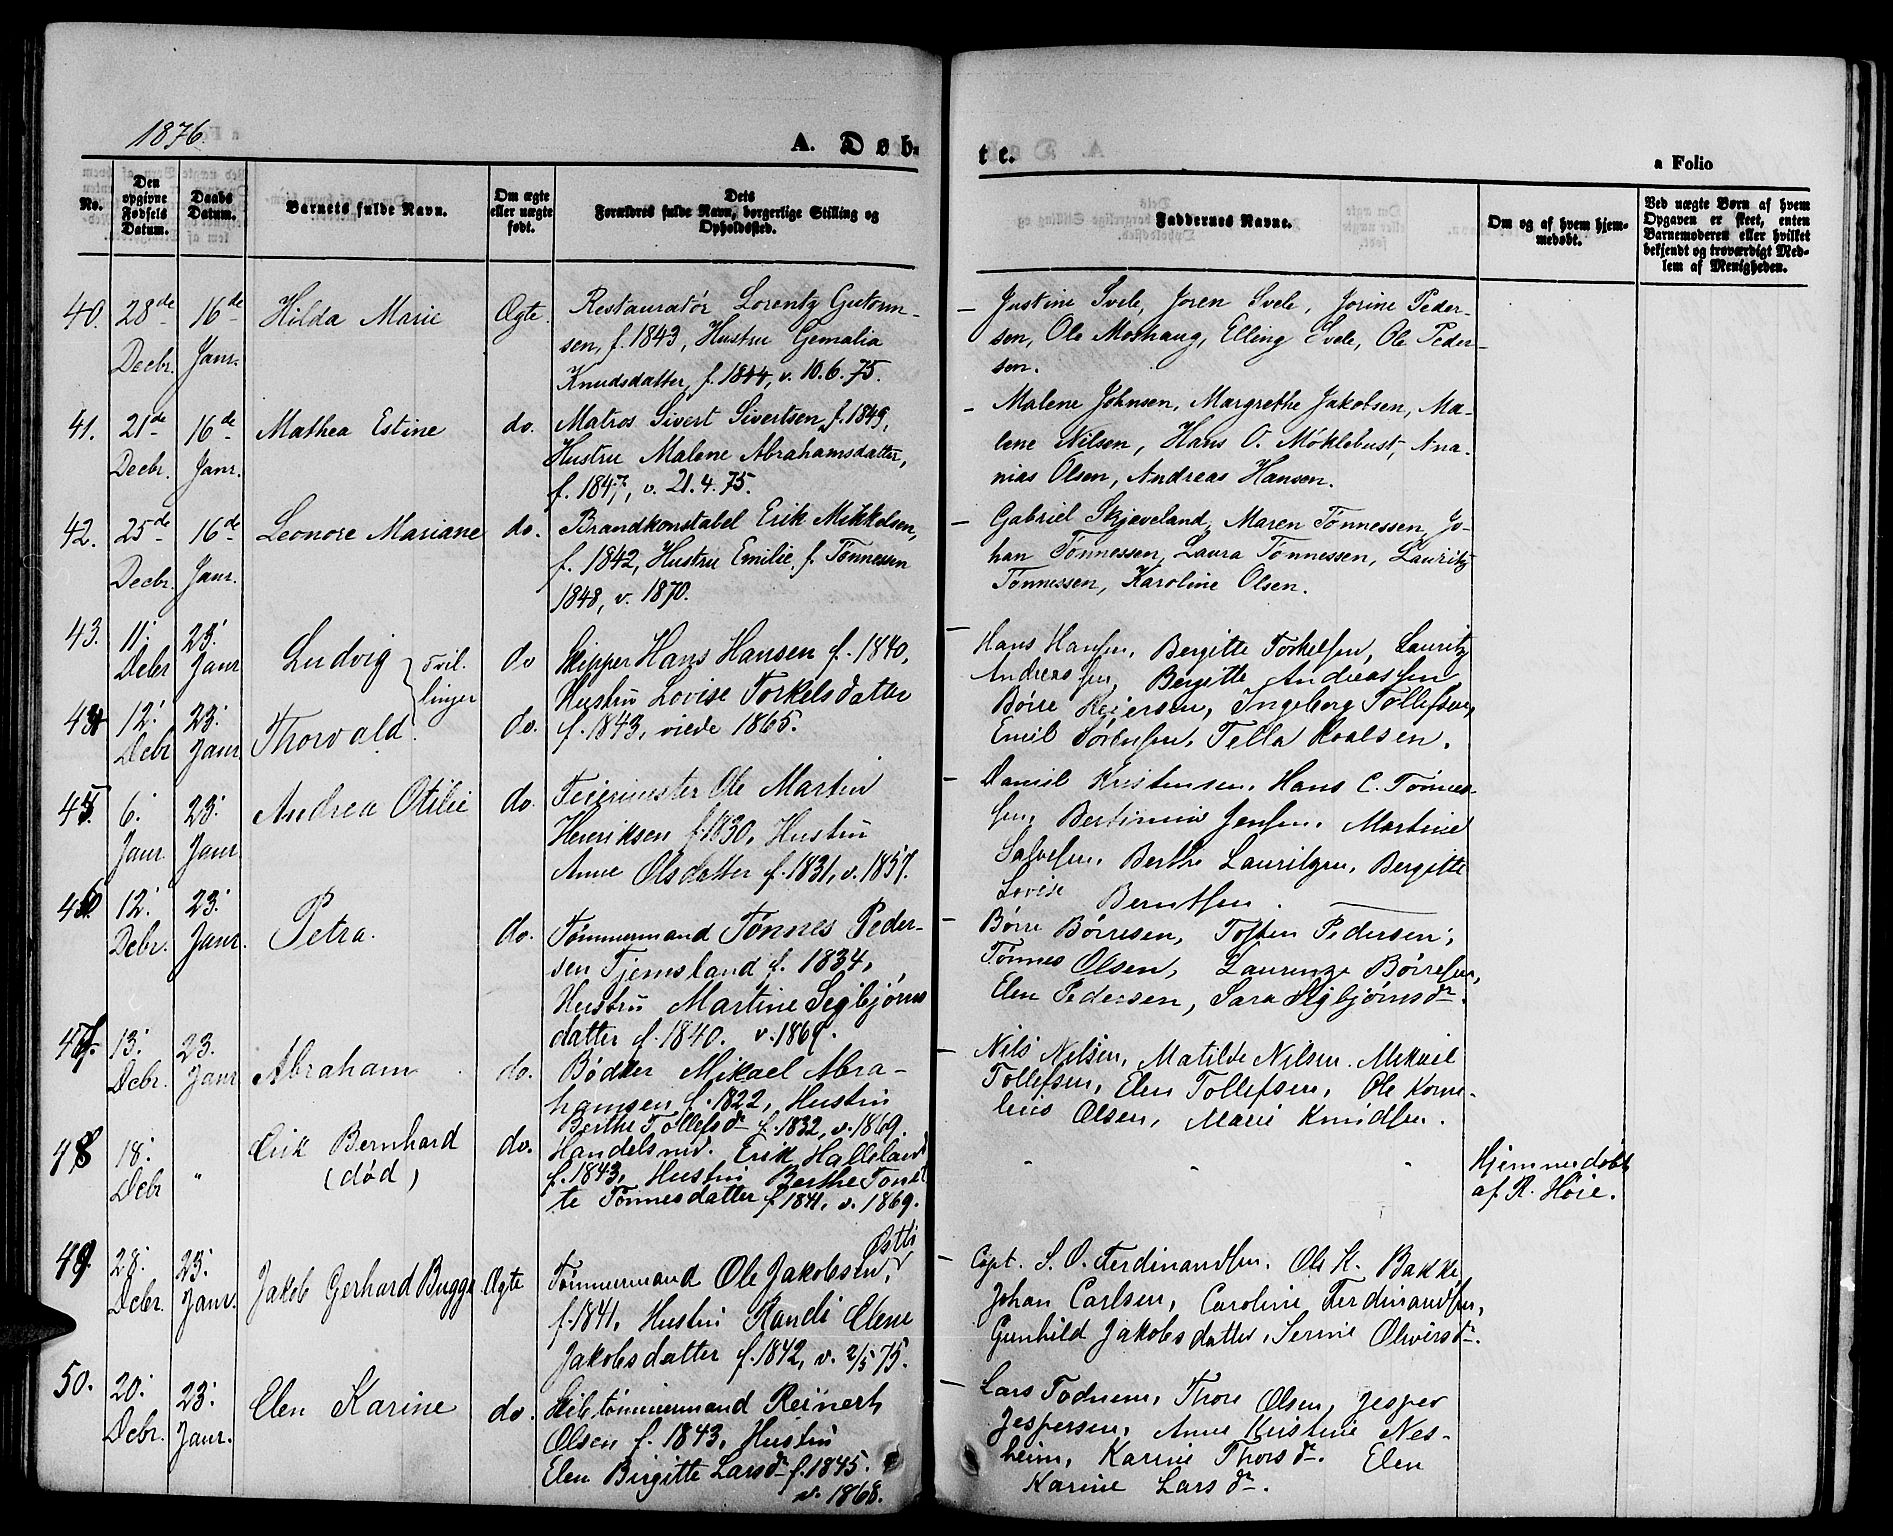 1876.
A. Døb-
te.
a Folio
No.
Den opgivne Fødsels Datum.
Daabs Datum.
Barnets fulde Navn.
Om ægte eller uægte født.
Dets Forældres fulde Navn, borgerlige Stilling og Opholdssted.
Faddernes Navne.
Om og af hvem hjemmedøbt.
Ved uægte Børn af hvem Opgaven er skeet, enten Barnemoderen eller hvilket bekjendt og troværdigt Medlem af Menigheden.
40. 28de Decbr. 16de Janr. Hilda Marie Ægte.
Restauratør Lorentz Gutorm-
sen, f. 1843, Hustru Gemalia
Knudsdatter, f. 1844, v. 10.6.75.
- Justine Svele, Joren Svele, Jorine Peder-
sen, Ole Moshaug, Elling Svele, Ole Peder-
sen.
41. 21de Decbr. 16de Janr. Mathea Estine do.
Matros Sivert Sivertsen, f. 1849,
Hustru Malene Abrahamsdatter,
f. 1847, v. 21.4.75.
- Malene Johnsen, Margrethe Jakobsen, Ma-
lene Nilsen, Hans O. Møklebust, Ana-
nias Olsen, Andreas Hansen.
42. 25de Decbr. 16de Janr. Leonore Mariane do.
Brandkonstabel Erik Mikkelsen,
f. 1842, Hustru Emilie, f. Tønnessen
1848, v. 1870.
- Gabriel Skjæveland, Maren Tønnessen, Jo-
han Tønnessen, Laura Tønnessen, Lauritz
Tønnessen, Karoline Olsen.
43. 11. Debr 23. Janr Ludvig do
Tvil-
linger
44 12. Debr 23. Janr Thorvald. do.
Skipper Hans Hansen f. 1840,
Hustru Lovise Torkelsdatter
f. 1843, viede 1865.
- Hans Hansen, Bergitte Torkelsen, Lauritz
Andreassen, Bergitte Andreassen
Børre Reiersen, Ingeborg Tollefsen,
Emil Sørensen, Tella Roalsen.
45. 6. Janr 23. Janr Andrea Otilie do.
Feiermester Ole Martin
Henriksen f. 1830, Hustru
Anne Olsdatter f. 1831, v. 1857.
- Daniel Kristensen, Hans C. Tønnes-
sen, Jensen, Martine
Salvesen, Berthe Lauritzen, Bergitte
Lovise Berntsen.
46. 12. Debr. 23. Janr. Petra. do.
Tømmermand Tønnes Peder-
sen Tjemsland f. 1834,
Hustru Martine Segbjørns
datter f. 1840. v. 1869.
- Børre Børresen, Tosten Pedersen,
Tønnes Olsen, Laurenze Børresen,
Elen Pedersen, Sara Segbjørnsdr.
47. 13. Debr. 23. Janr Abraham do.
Bødker Mikael Abra-
hamsen f. 1822, Hustru
Berthe Tollefsdr f. 1832, v. 1869.
- Nils Nilsen, Matilde Nilsen, Mikael
Tollefsen, Elen Tollefsen, Ole Korne-
lius Olsen, Marie Knudsen.
48 18. Debr " Erik Bernhard
(død) do.
Handelsmd. Erik Halleland
f. 1843, Hustru Berthe Tonet
te Tønnesdatter f. 1841, v. 1869.
" " "
Hjemmedøbt
af R. Høie.
49. 28. Debr. 23. Janr. Jakob Gerhard Bugge Ægte
Østbø
Tømmermand Ole Jakobsen,
f. 1841, Hustru Randi Elene
Jakobsdatter f. 1842, v. 2/5 75.
- Capt. S. O. Ferdinandsen, Ole K. Bakke
Johan Carlsen, Caroline Ferdinandsen,
Gunhild Jakobsdatter, Serine Oliversdr.
50. 20. Debr. 23. Janr. Elen Karine do.
Skibstømmermand Reinert
Olsen f. 1843, Hustru
Elen Birgitte Larsdr f. 1845.
v. 1868.
- Lars Todnem, Thore Olsen, Jesper
Jespersen, Anne Kirstine Nes-
heim, Karine Thorsdr. Elen
Karine Larsdr.